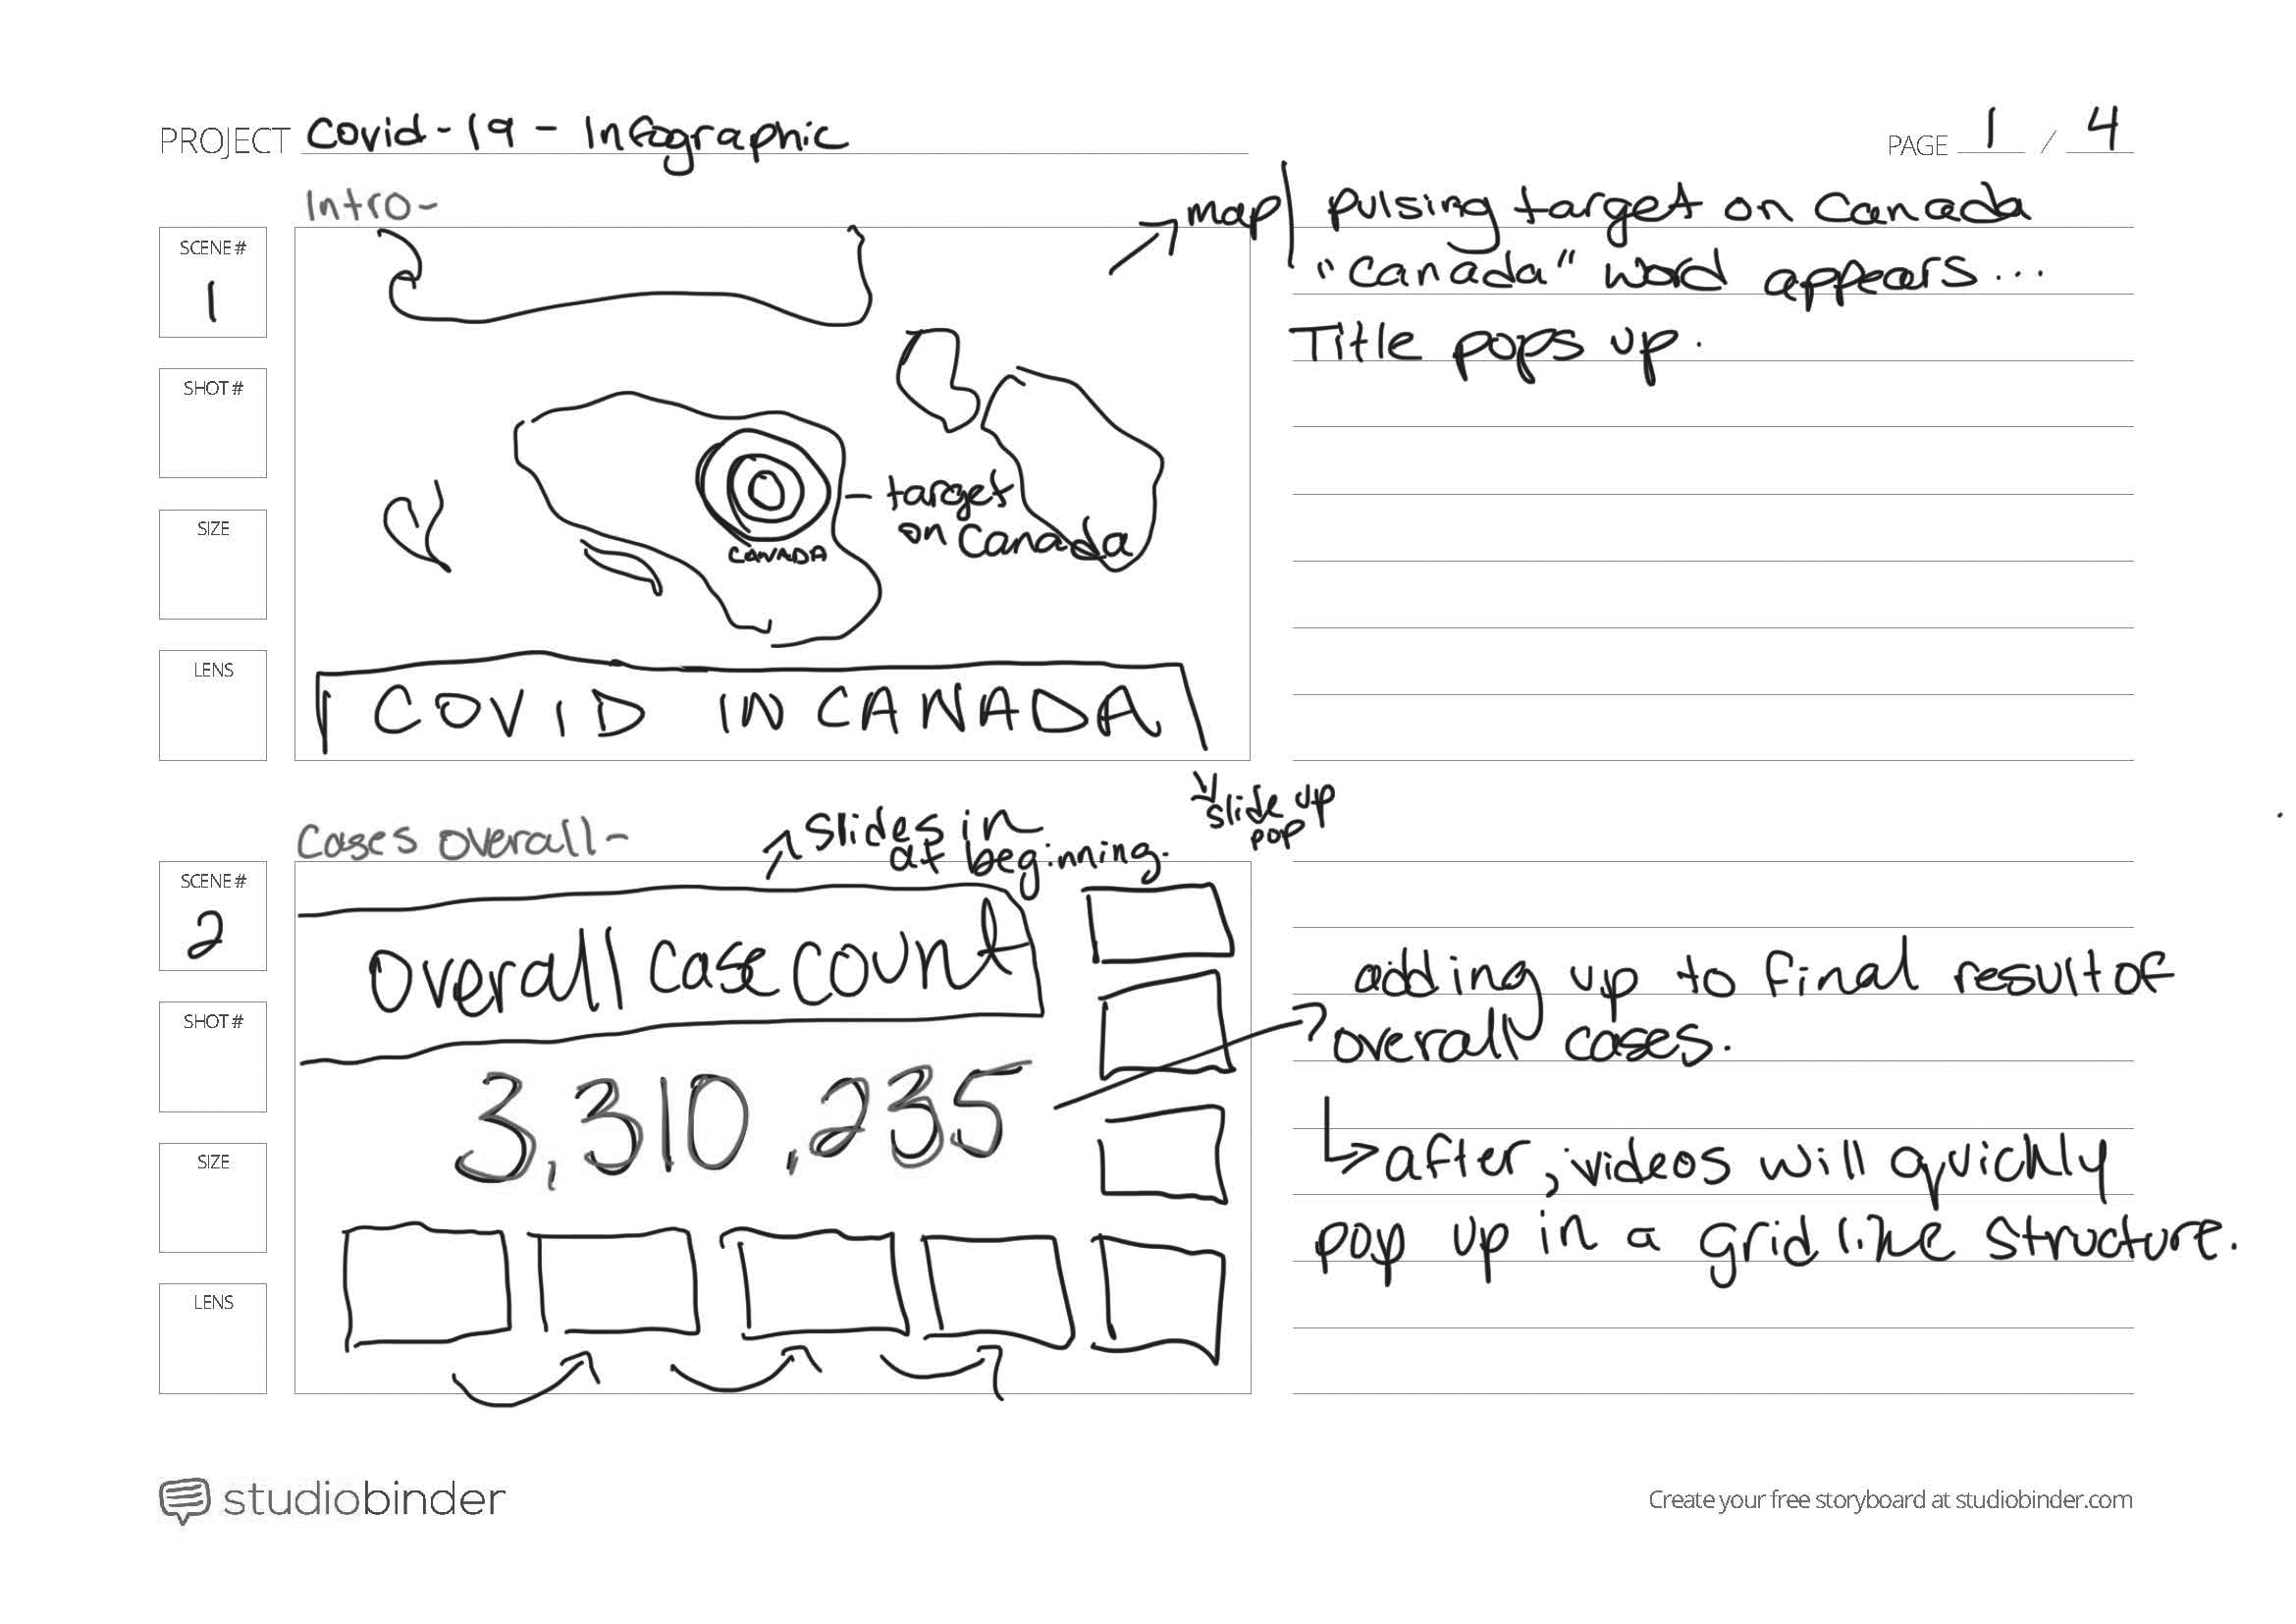 PROJECT Covid-19 - Infographic
PAGE 1 / 4
Intro-
SCENE #
1
SHOT #
SIZE
LENS
map
pulsing target on Canada
"Canada" word appears...
Title pops up.
target
on Canada
CANADA
COVID IN CANADA
slide up
pop
Cases overall-
slides in
at beginning.
SCENE #
2
SHOT #
SIZE
LENS
overall case count
3,310,235
adding up to final result of
overall cases.
after, videos will quickly
pop up in a grid like structure.
studiobinder
Create your free storyboard at studiobinder.com